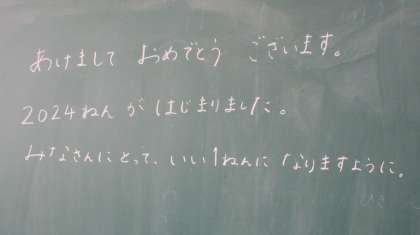 あけまして おめでとう ございます。
2024ねん が はじまりました。
みなさんにとって、いい1ねんに なりますように。